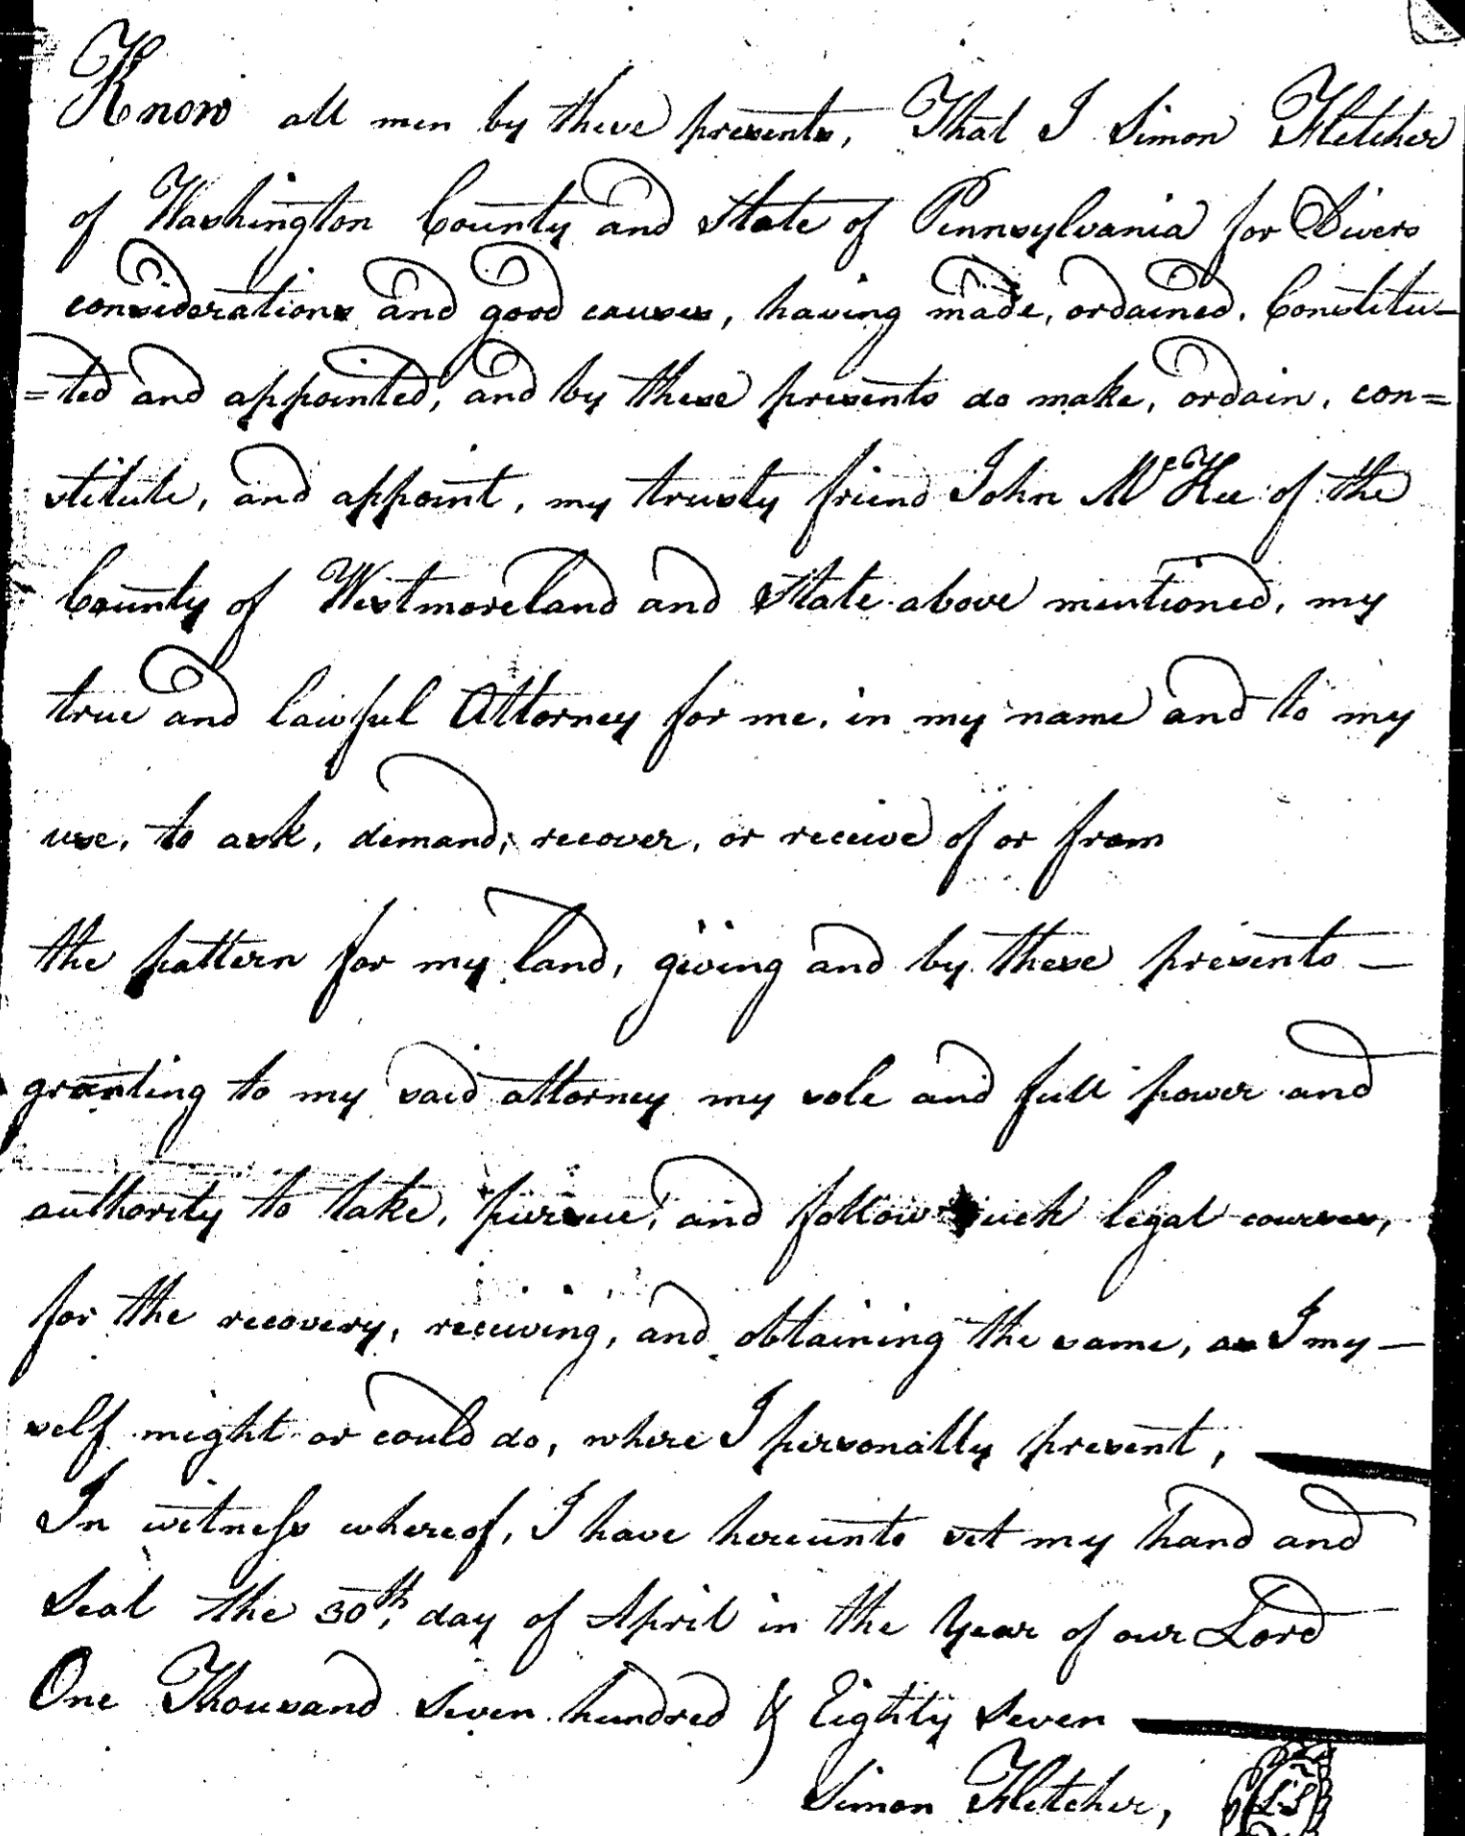 Know all men by these presents, That I Simon Fletcher
of Washington County and State of Pennsylvania for Divers
considerations and good causes, having made, ordained, Constitu-
=ted and appointed, and by these presents do make, ordain, con=
stitute, and appoint, my trusty friend John McKee of the
County of Westmoreland and State above mentioned, my
true and lawful Attorney for me, in my name and to my
use, to ask, demand, recover, or receive of or from
the pattern for my land, giving and by these presents —
granting to my said attorney my sole and full power and
authority to take, pursue, and follow such legal courses,
for the recovery, receiving, and obtaining the same, as I my—
self might or could do, where I personally present,
In witness whereof, I have hereunto set my hand and
Seal the 30th, day of April in the Year of our Lord
One Thousand Seven hundred & Eighty Seven
Simon Fletcher, LS